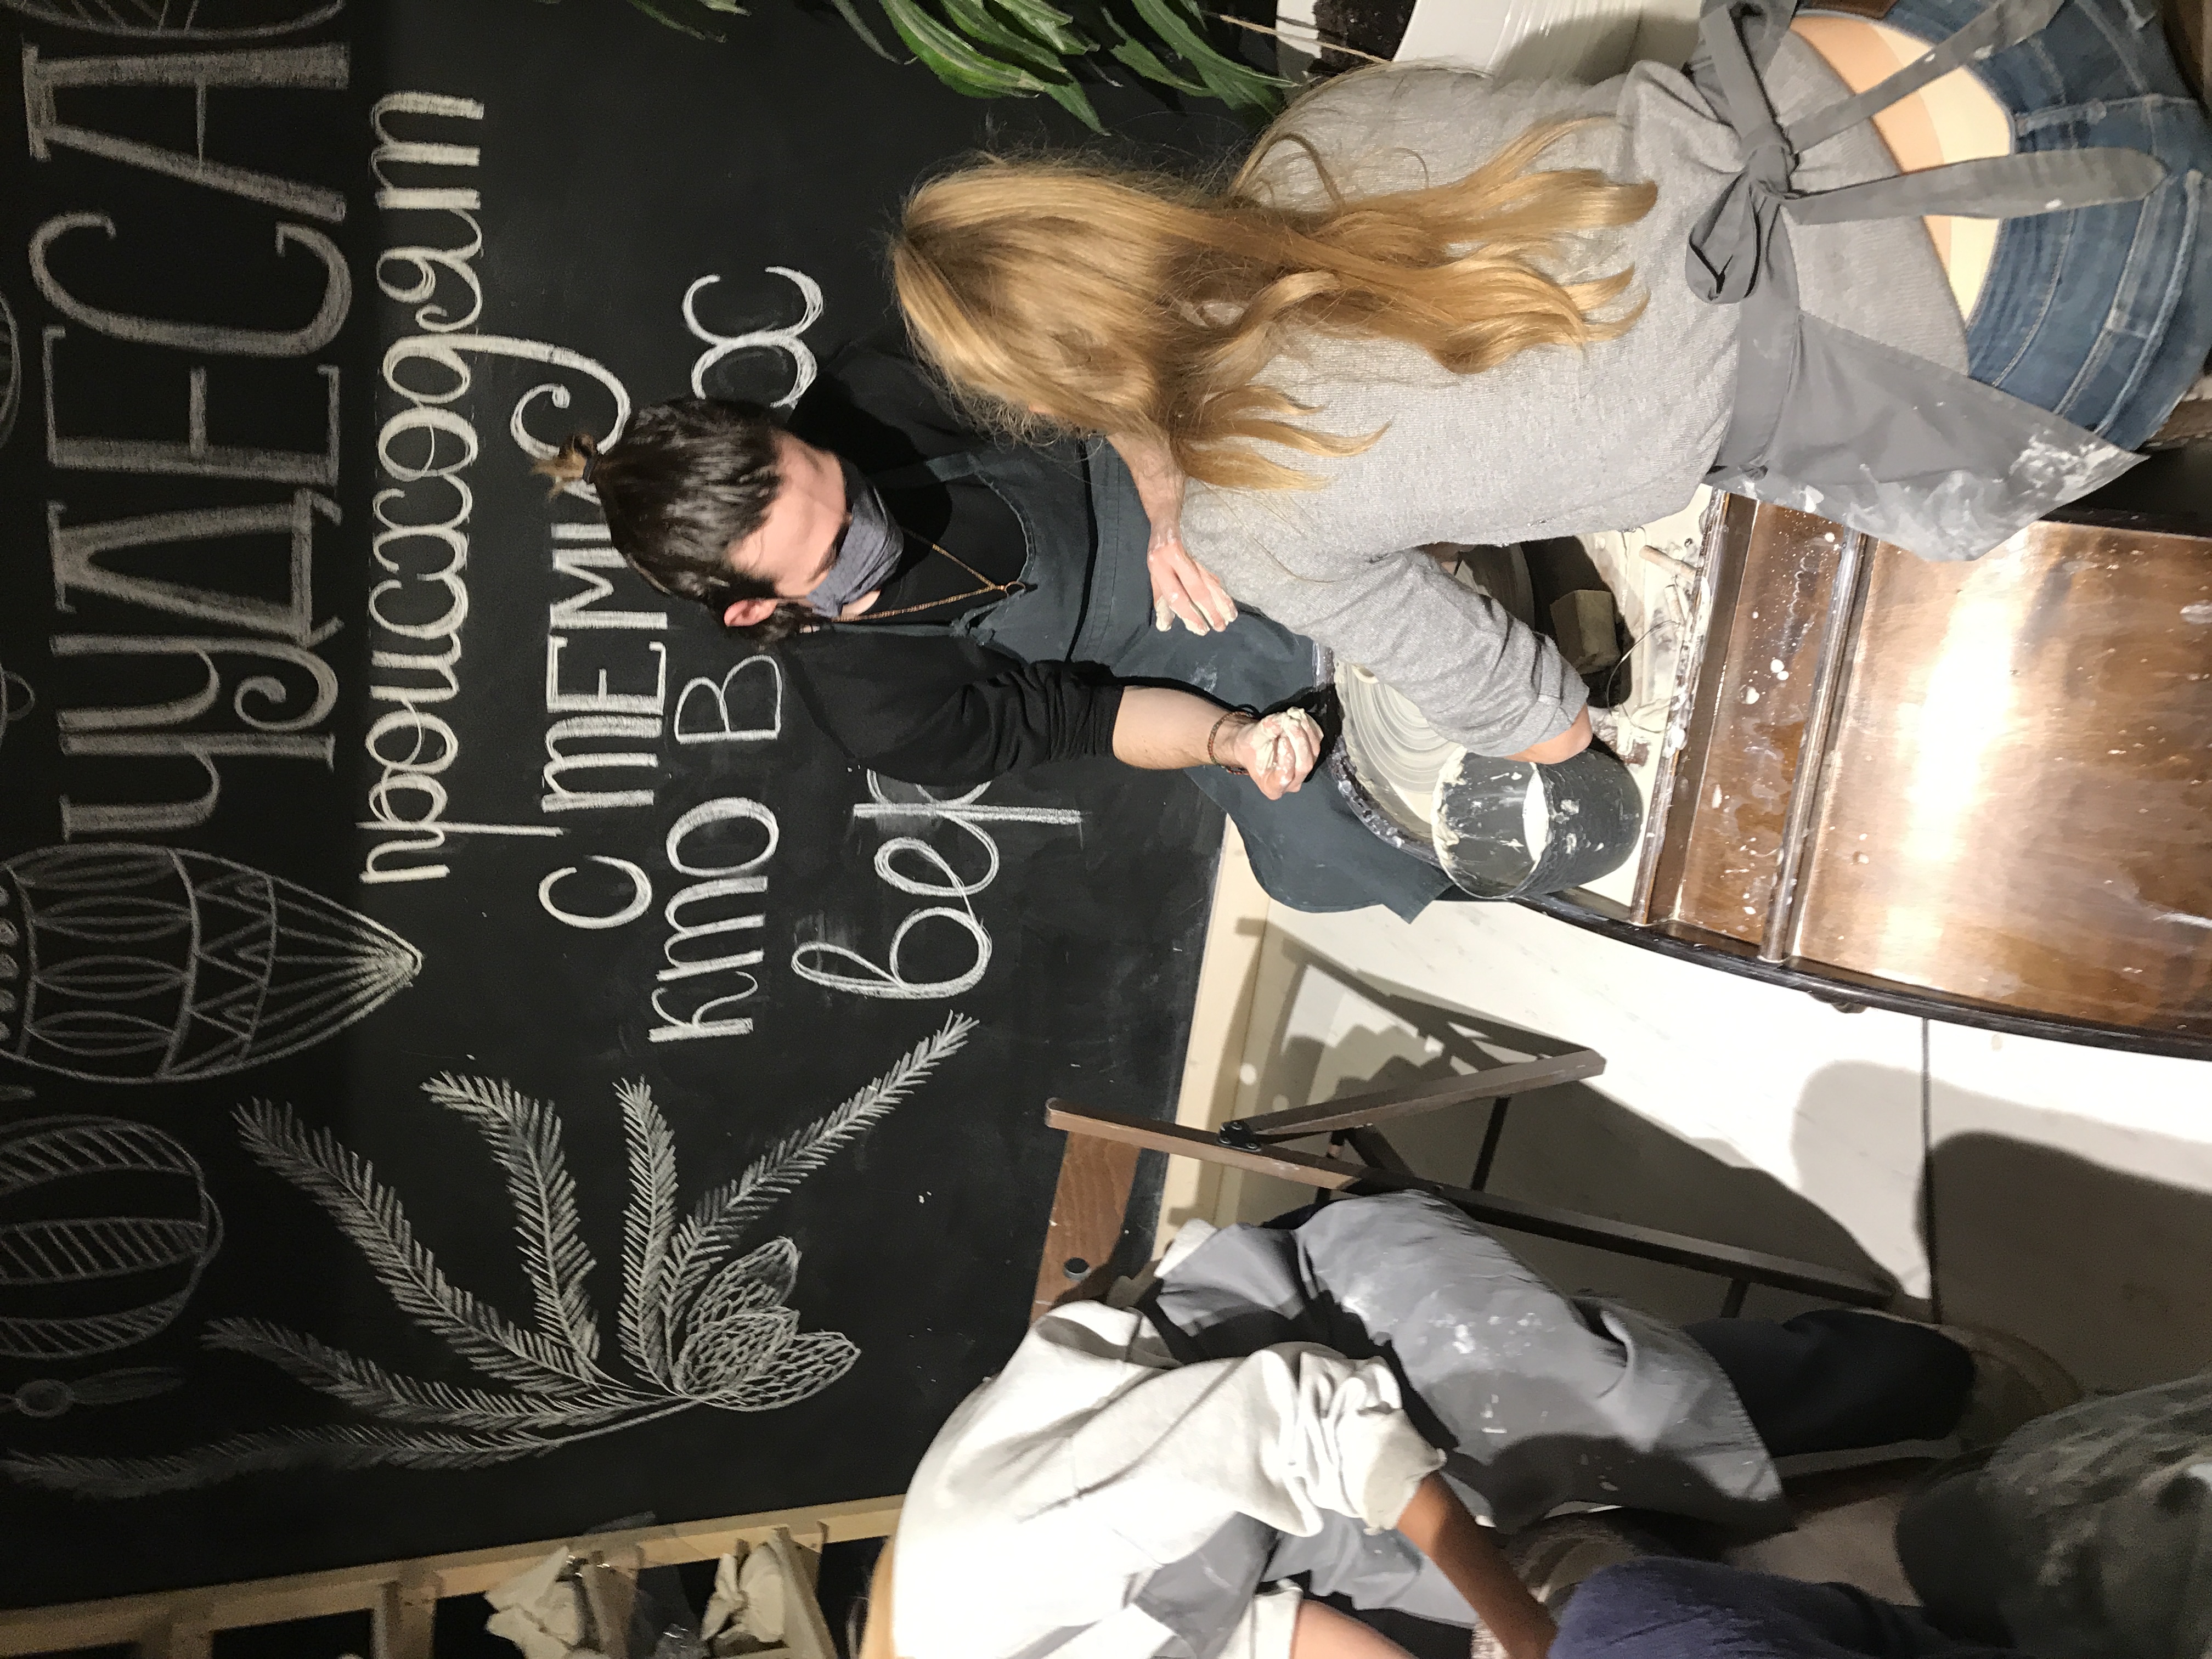 ЧУДЕСА
происходят
с теми
кто в